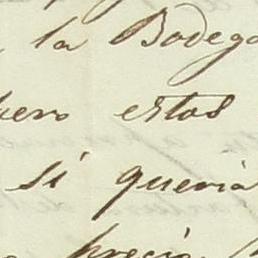 la Bodega
pero estos
si queria
precio